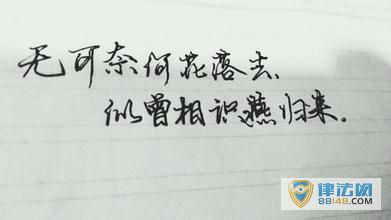 无可奈何花落去、
似曾相识燕归来。
律法网
88148.com